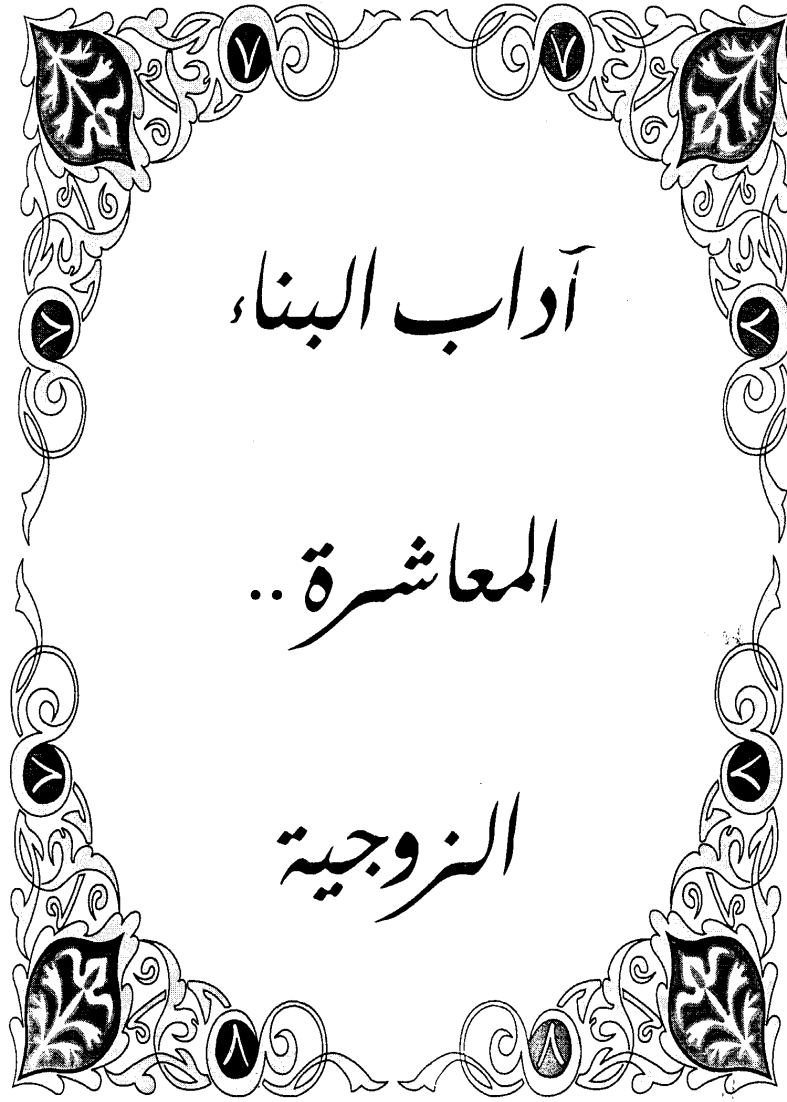 آداب البناء
المعاشرة ..
الزوجية